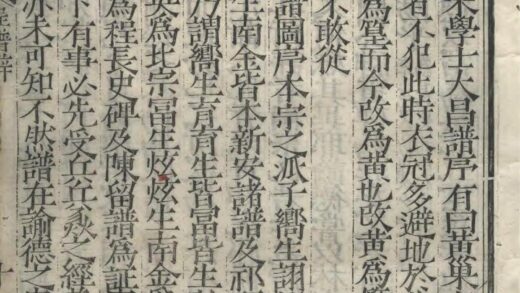 宋學士大昌譜序有曰黃巢
者不犯此時衣冠多避地於
爲篁而今改爲黃也改黃爲
不敢從
譜圖序本宗之派子嚮生詡
生南金皆本新安諸譜及祁
乃謂嚮生育育生皆冨皆生
英爲比宗冨生炫炫生南金
爲程長史碑及陳留譜爲証
下有事必先受之經
亦未可知不然譜在諭德之
譜辯 十